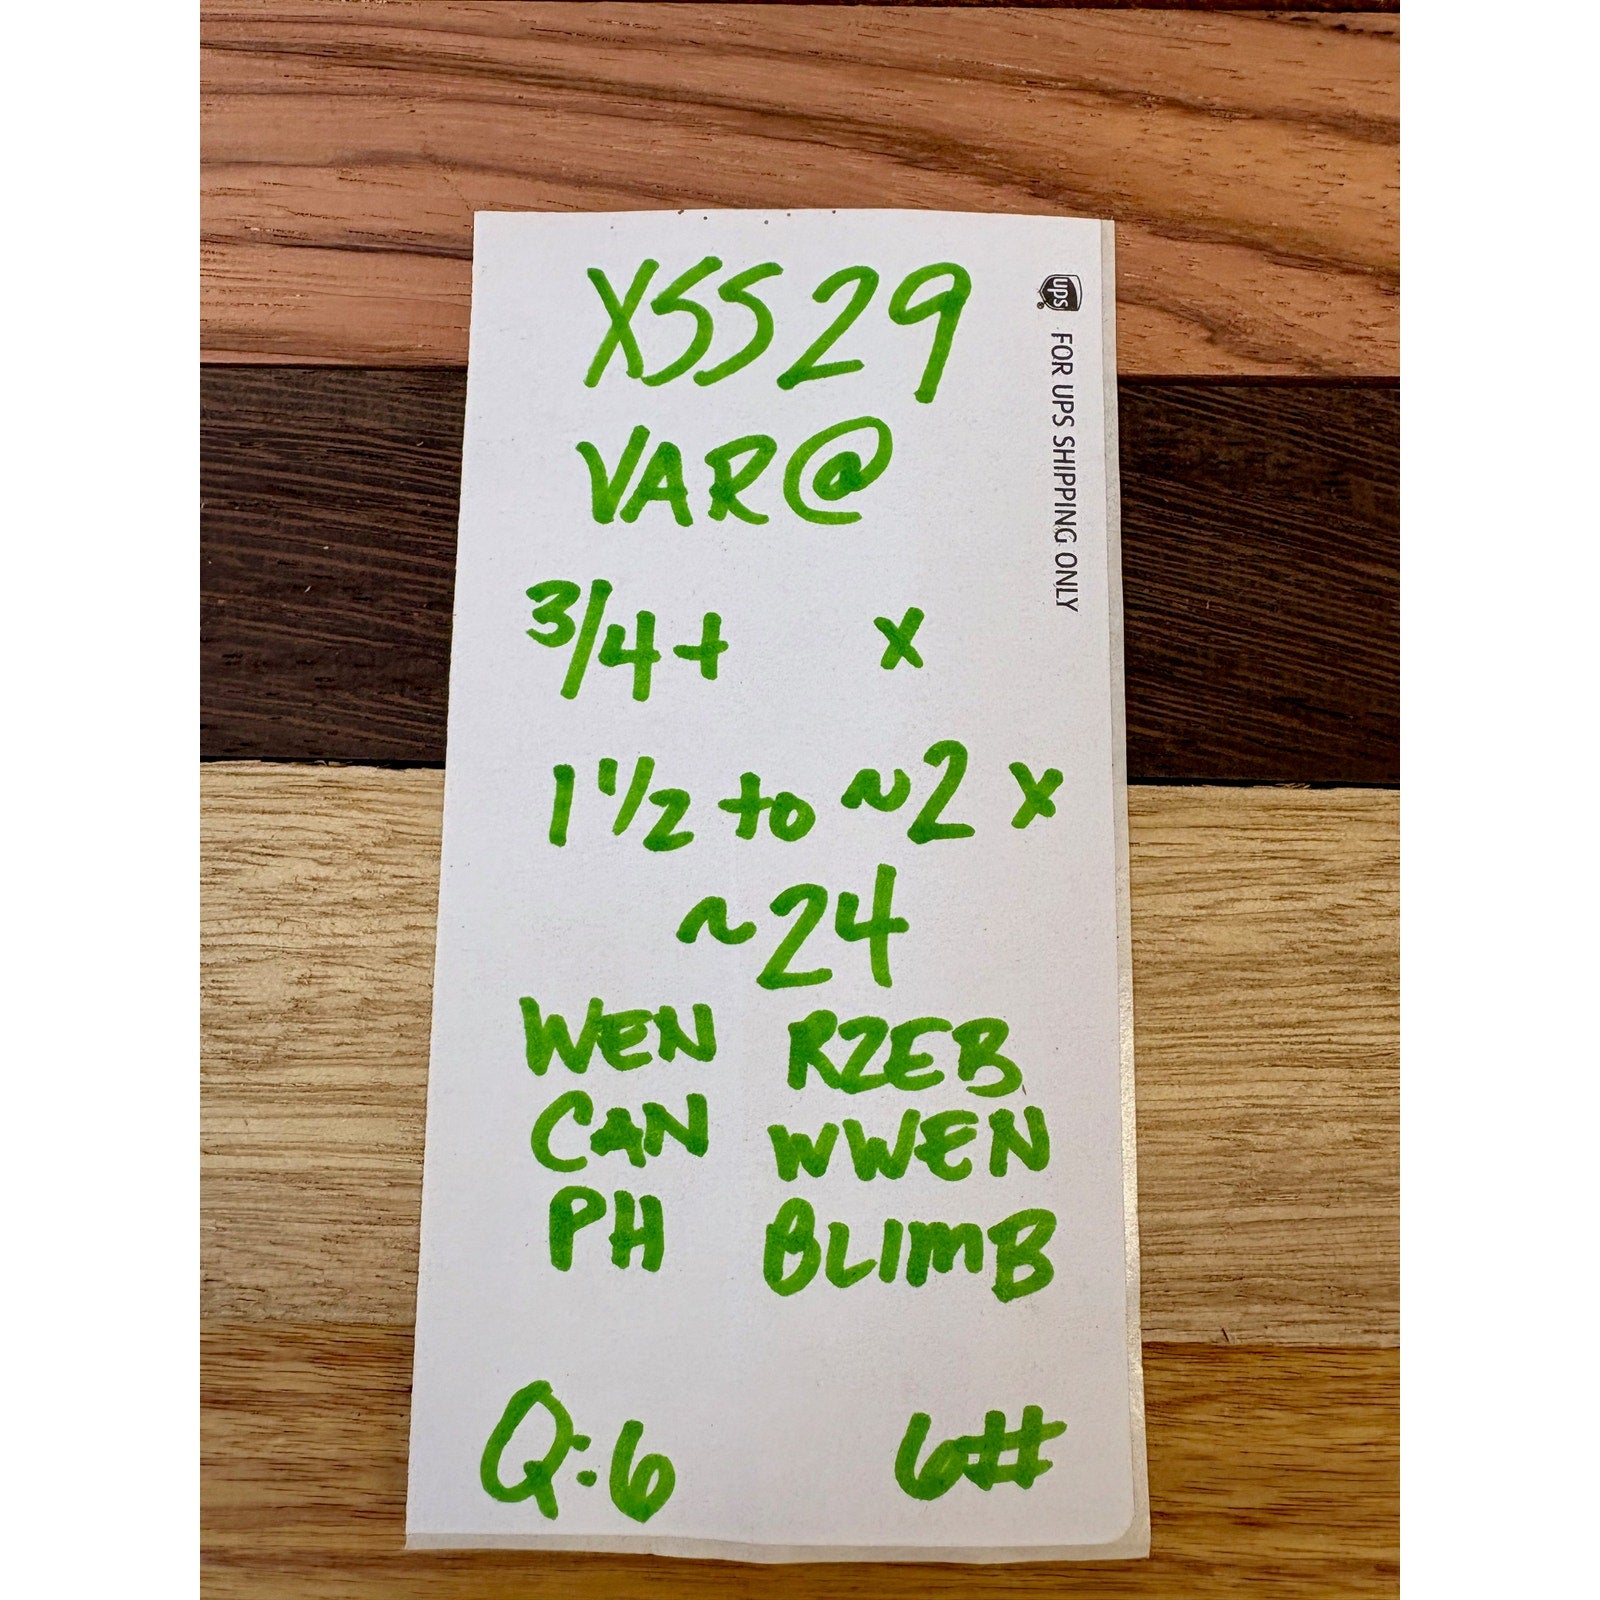 XSS29
VAR@
3/4+ x
1 1/2 to ~2 x
~24
WEN RZEB
CAN WWEN
PH BLIMB
Q:6 6#
ups
FOR UPS SHIPPING ONLY